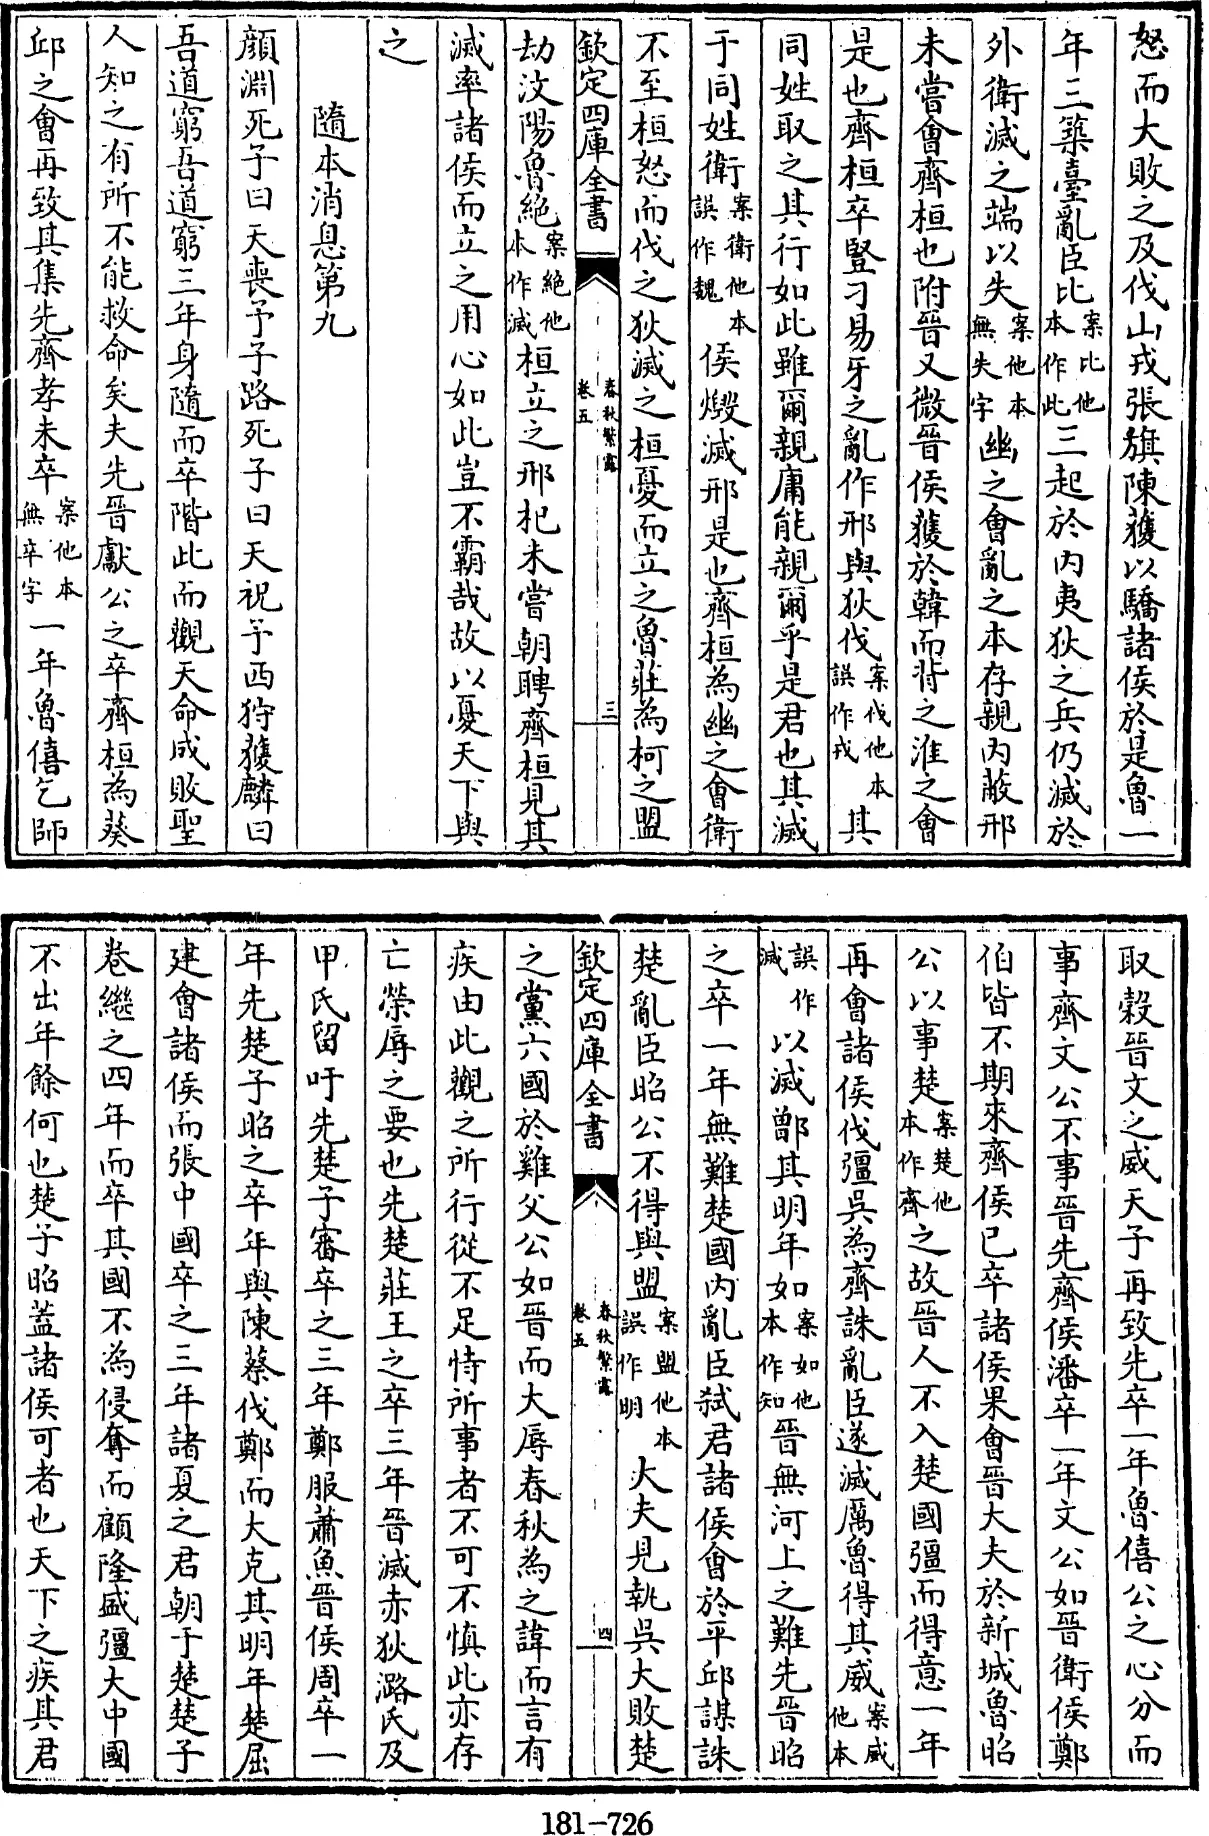 怒而大敗之及伐山戎張旗陳獲以驕諸侯於是魯一
年三築臺亂臣比案比他本作此三起於内夷狄之兵仍滅於
外衛滅之端以失案他本無失字幽之會亂之本存親内蔽邢
未嘗會齊桓也附晉又微晉侯獲於韓而背之淮之會
是也齊桓卒豎刁易牙之亂作邢與狄伐案伐他本誤作戎其
同姓取之其行如此雖爾親庸能親爾乎是君也其滅
于同姓衛案衛他本誤作魏侯燬滅邢是也齊桓為幽之會衛
不至桓怒而伐之狄滅之桓憂而立之魯莊為柯之盟
欽定四庫全書 春秋繁露卷五 三
劫汶陽魯絶案絶他本作滅桓立之邢杞未嘗朝聘齊桓見其
滅率諸侯而立之用心如此豈不霸哉故以憂天下與
之
隨本消息第九
顔淵死子曰天喪予子路死子曰天祝予西狩獲麟曰
吾道窮吾道窮三年身隨而卒階此而觀天命成敗聖
人知之有所不能救命矣夫先晉獻公之卒齊桓為葵
邱之會再致其集先齊孝未卒案他本無卒字一年魯僖乞師
取穀晉文之威天子再致先卒一年魯僖公之心分而
事齊文公不事晉先齊侯潘卒一年文公如晉衛侯鄭
伯皆不期來齊侯已卒諸侯果會晉大夫於新城魯昭
公以事楚案楚他本作齊之故晉人不入楚國彊而得意一年
再會諸侯伐彊吳為齊誅亂臣遂滅厲魯得其威案威他本
誤作滅以滅鄫其明年如案如他本作知晉無河上之難先晉昭
之卒一年無難楚國内亂臣弑君諸侯會於平邱謀誅
楚亂臣昭公不得與盟案盟他本誤作明大夫見執吳大敗楚
欽定四庫全書 春秋繁露卷五 四
之黨六國於雞父公如晉而大辱春秋為之諱而言有
疾由此觀之所行從不足恃所事者不可不慎此亦存
亡榮辱之要也先楚莊王之卒三年晉滅赤狄潞氏及
甲氏留吁先楚子審卒之三年鄭服蕭魚晉侯周卒一
年先楚子昭之卒年與陳蔡伐鄭而大克其明年楚屈
建會諸侯而張中國卒之三年諸夏之君朝于楚楚子
卷繼之四年而卒其國不為侵奪而顧隆盛彊大中國
不出年餘何也楚子昭蓋諸侯可者也天下之疾其君
181-726